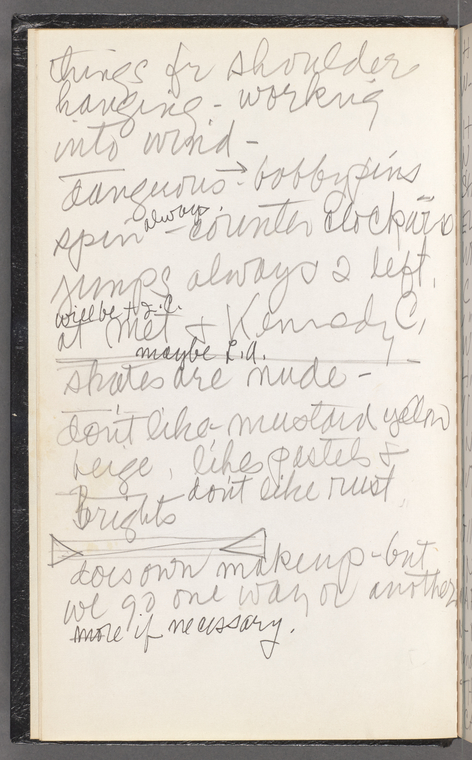 things fr shoulder
hanging - working
into wind -
dangerous → bobbypins
always.
spin - counter clockwise
jumps always 2 left.
will be
at Met & Kennedy C.
maybe L.A.
skates are nude -
don't like mustard yellow
beige, likes pastels &
brights don't like rust
does own makeup - but
we go one way or another
more if necessary.